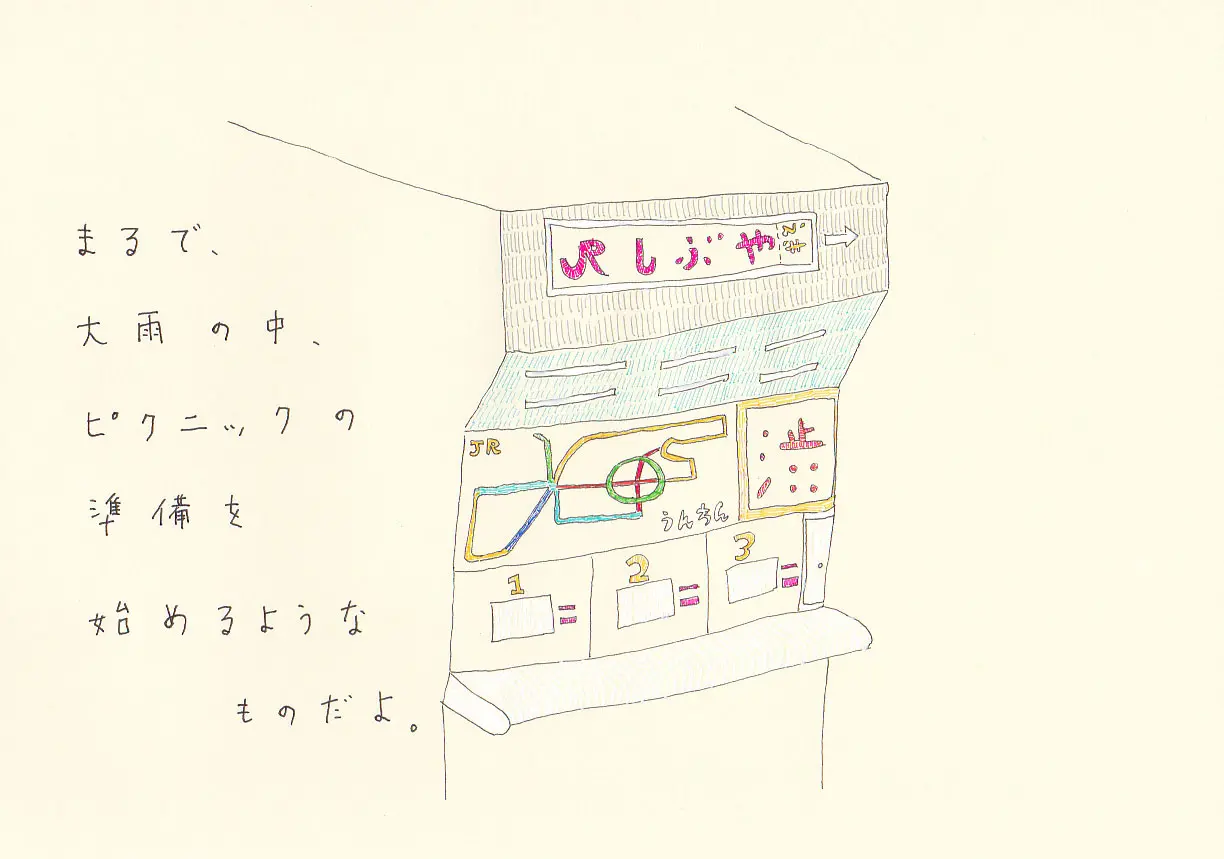 まるで、
大雨の中、
ピクニックの
準備を
始めるような
ものだよ。
JRしぶや
JR
うんちん
1
2
3